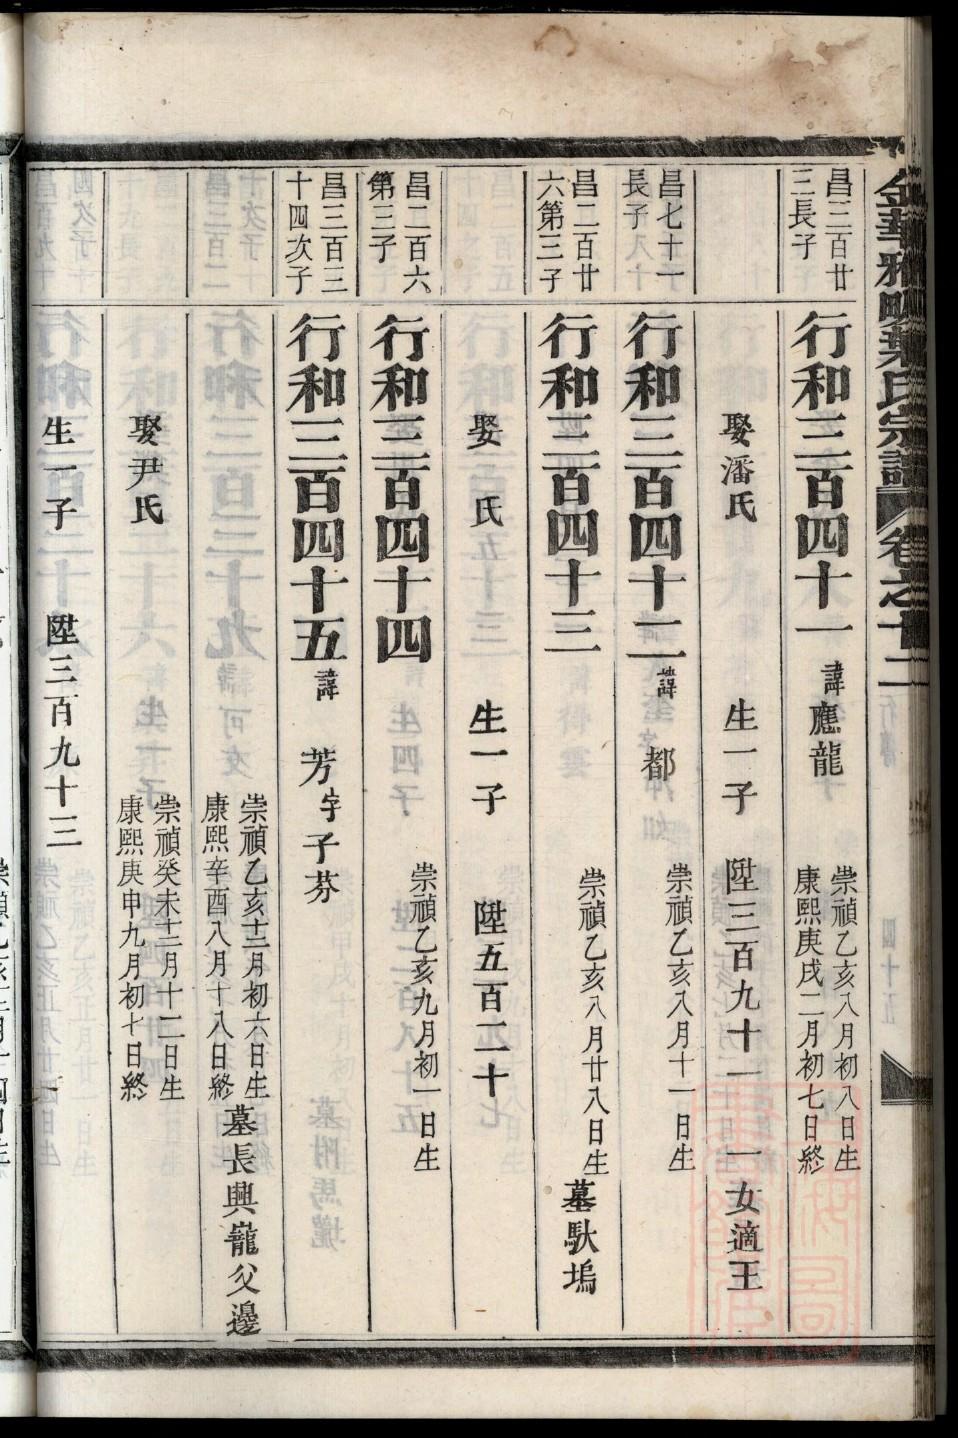 金華雅畈葉氏宗譜 卷之十二
昌三百廿三長子
行和三百四十一 諱應龍 崇禎乙亥八月初八日生 康熙庚戌二月初七日終
娶潘氏 生一子 陞三百九十一 一女適王
昌七十一長子
行和三百四十二 諱都 崇禎乙亥八月十一日生
昌二百廿六第三子
行和三百四十三 崇禎乙亥八月廿八日生 墓馱塢
娶 氏 生一子 陞五百二十
昌二百六第三子
行和三百四十四 崇禎乙亥九月初一日生
昌三百三十四次子
行和三百四十五 諱芳字子芬
崇禎乙亥十二月初六日生 康熙辛酉八月十八日終 墓長興巃父邊
娶尹氏 崇禎癸未十二月十二日生 康熙庚申九月初七日終
生一子 陞三百九十三